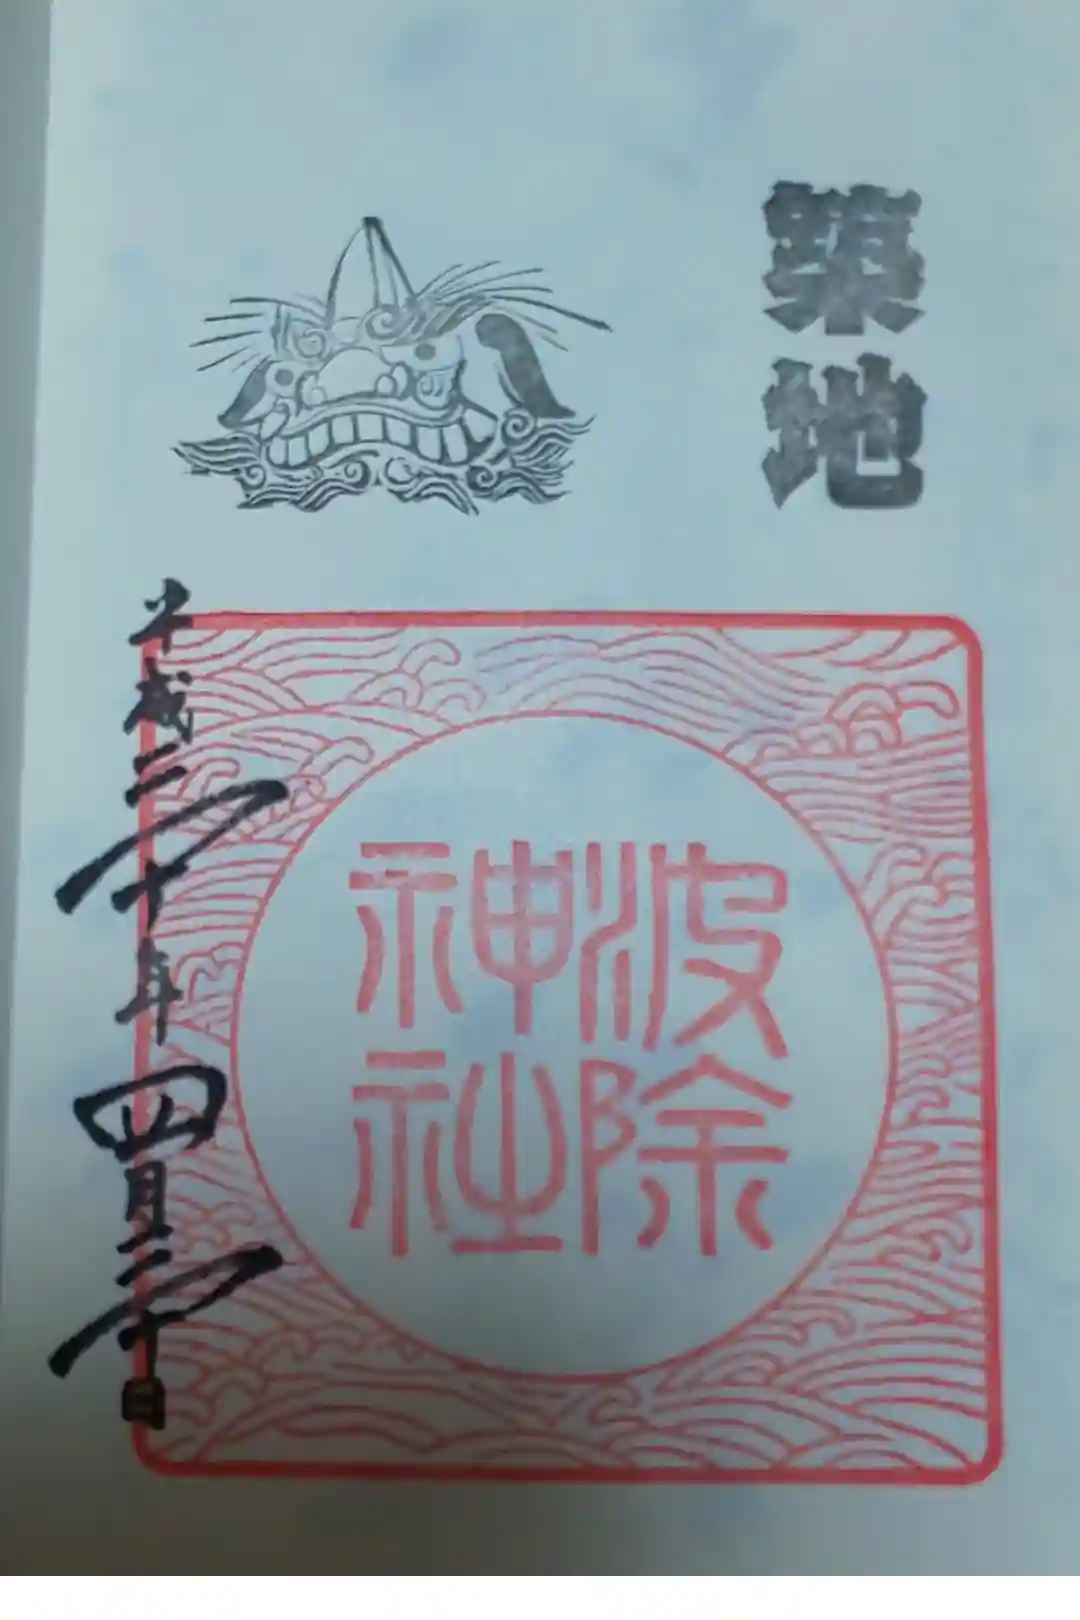 築地
波除
神社
平成三十年四月三十日